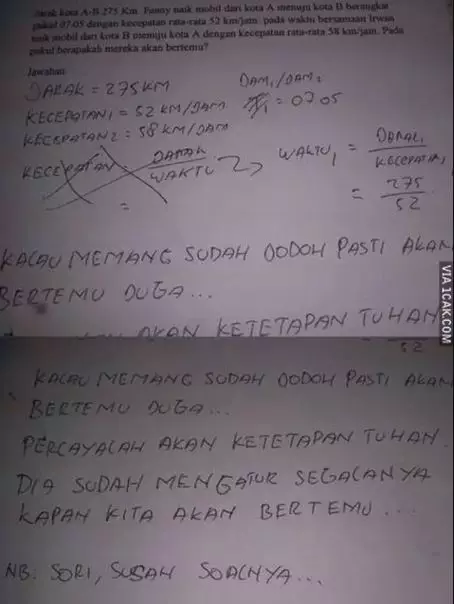 Jarak kota A-B 275 Km. Fanny naik mobil dari kota A menuju kota B berangkat
pukul 07.05 dengan kecepatan rata-rata 52 km/jam. pada waktu bersamaan Irwan
naik mobil dari kota B menuju kota A dengan kecepatan rata-rata 58 km/jam. Pada
pukul berapakah mereka akan bertemu?
Jawaban
JARAK = 275 KM
KECEPATAN1 = 52 KM/JAM
KECEPATAN2 = 58 KM/JAM
JAM1/JAM2
= 07.05
KECEPATAN = JARAK
WAKTU
=
WAKTU1 = JARAK1
KECEPATAN1
= 275
52
KALAU MEMANG SUDAH JODOH PASTI AKAN
BERTEMU JUGA...
AKAN KETETAPAN TUHAN
52
KALAU MEMANG SUDAH JODOH PASTI AKAN
BERTEMU JUGA...
PERCAYALAH AKAN KETETAPAN TUHAN.
DIA SUDAH MENGATUR SEGALANYA
KAPAN KITA AKAN BERTEMU...
NB: SORI, SUSAH SOALNYA...
VIA 1CAK.COM